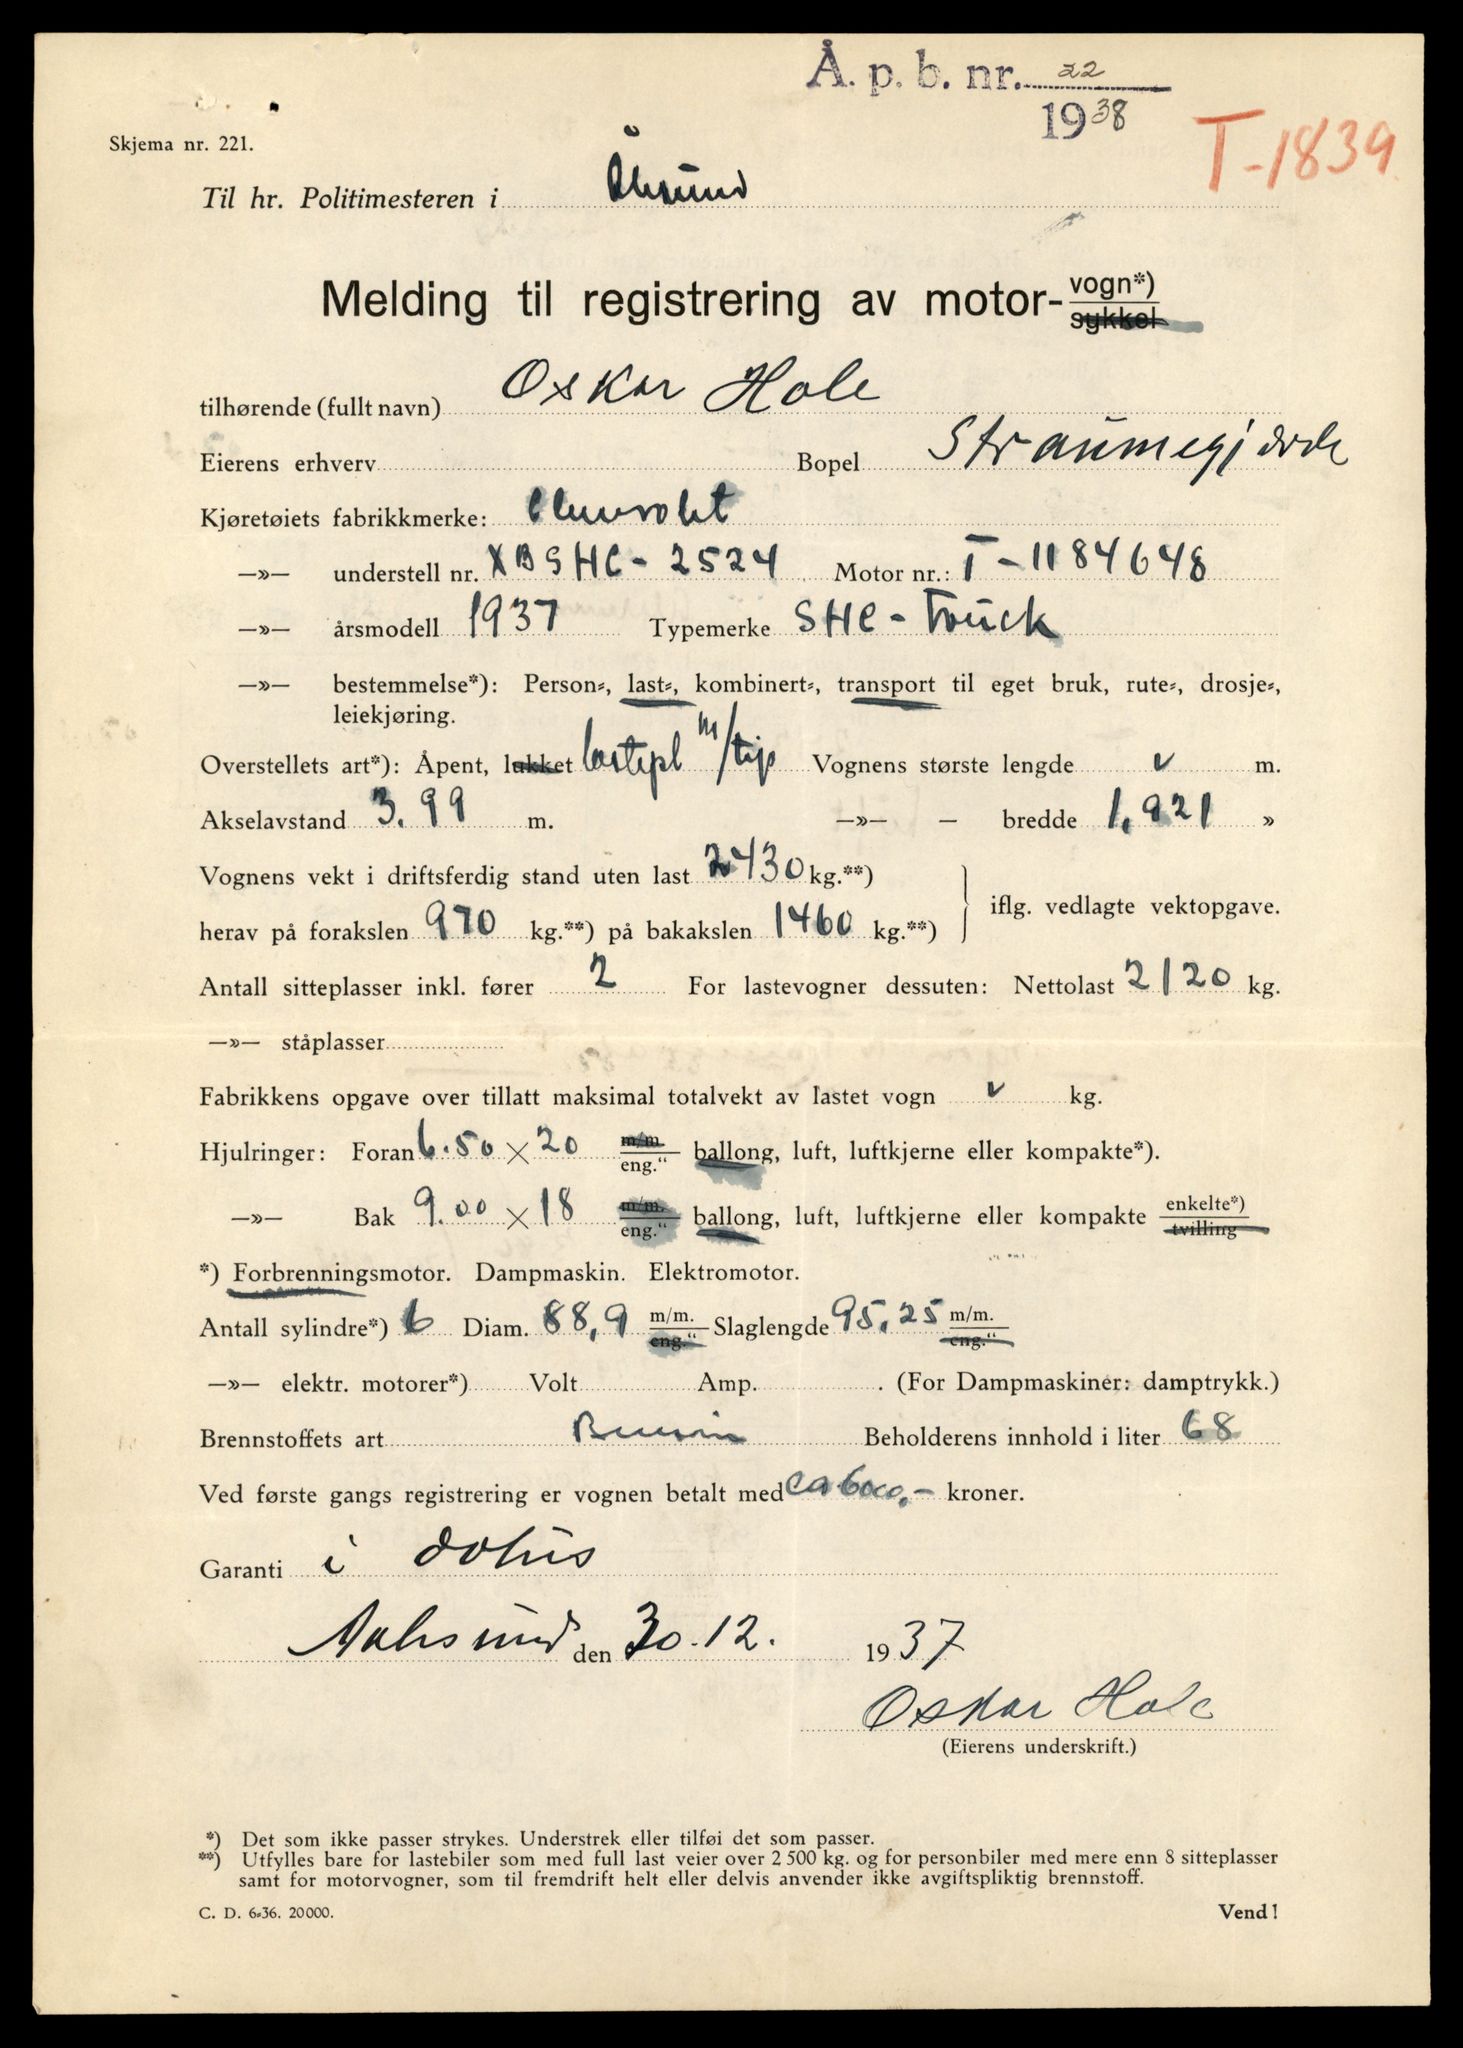 Å. p. b. nr. 22
1938
T-1839
Skjema nr. 221.
Til hr. Politimesteren i Ålesund
Melding til registrering av motor- vogn*)
sykkel
tilhørende (fullt navn) Oskar Hole
Eierens erhverv Bopel Straumegjerde
Kjøretøiets fabrikkmerke: Chevrolet
—»— understell nr. XBSHC - 2524 Motor nr.: T - 1184648
—»— årsmodell 1937 Typemerke SHC - Truck
—»— bestemmelse*): Person-, last-, kombinert-, transport til eget bruk, rute-, drosje-,
leiekjøring.
Overstellets art*): Åpent, lukket lastepl m/tip Vognens største lengde v m.
Akselavstand 3.99 m. —»— — bredde 1,921 »
Vognens vekt i driftsferdig stand uten last 2430 kg.**)
herav på forakslen 970 kg.**) på bakakslen 1460 kg.**) iflg. vedlagte vektopgave.
Antall sitteplasser inkl. fører 2 For lastevogner dessuten: Nettolast 2120 kg.
—»— ståplasser
Fabrikkens opgave over tillatt maksimal totalvekt av lastet vogn v kg.
Hjulringer: Foran 6.50 × 20 m/m. eng." ballong, luft, luftkjerne eller kompakte*).
—»— Bak 9.00 × 18 m/m. eng." ballong, luft, luftkjerne eller kompakte enkelte*) tvilling
*) Forbrenningsmotor. Dampmaskin. Elektromotor.
Antall sylindre*) 6 Diam. 88,9 m/m. eng." Slaglengde 95,25 m/m. eng."
—»— elektr. motorer*) Volt Amp. . (For Dampmaskiner: damptrykk.)
Brennstoffets art Bensin Beholderens innhold i liter 68
Ved første gangs registrering er vognen betalt med ca 6000,- kroner.
Garanti i
den 30.12. 1937
Oskar Hole
(Eierens underskrift.)
*) Det som ikke passer strykes. Understrek eller tilføi det som passer.
**) Utfylles bare for lastebiler som med full last veier over 2 500 kg. og for personbiler med mere enn 8 sitteplasser
samt for motorvogner, som til fremdrift helt eller delvis anvender ikke avgiftspliktig brennstoff.
C. D. 6-36. 20000. Vend!